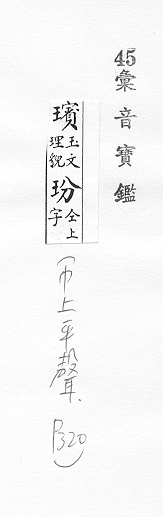 45彙音寶鑑
璸玉文理貌玢仝上字
(巾上平聲. P320)